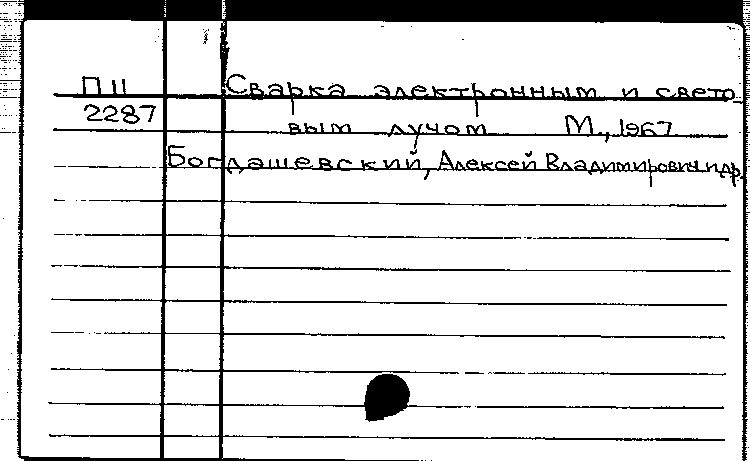 П 11 Сварка электронным и свето-
2287 вым лучом М., 1967
Богдашевский, Алексей Владимирович и др.